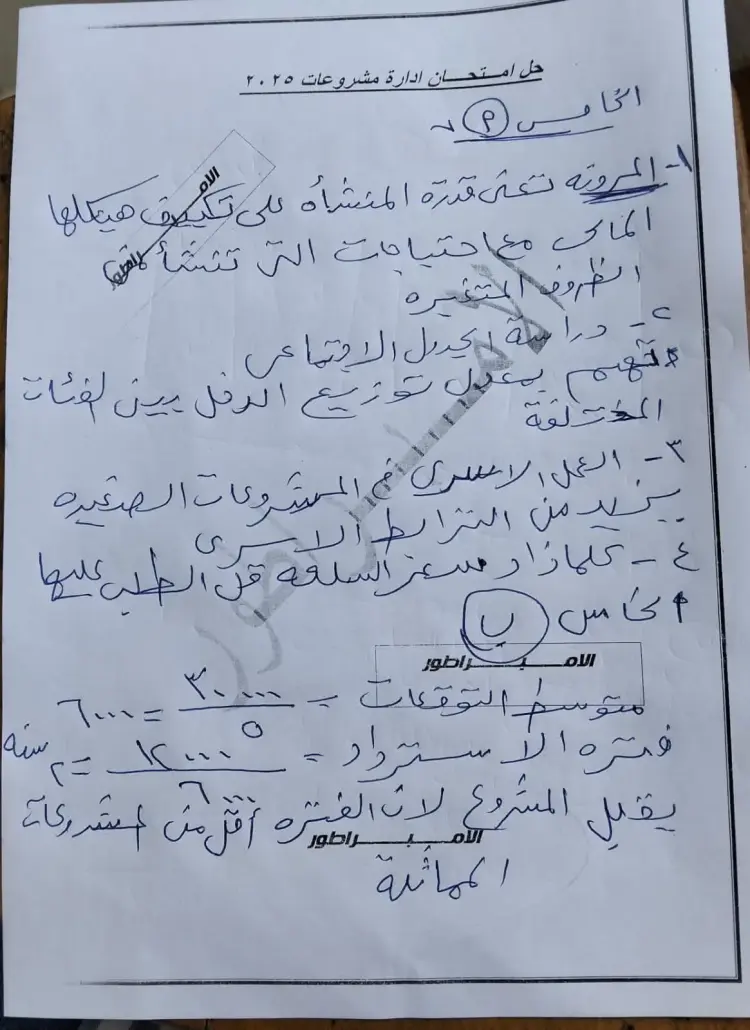 حل امتحان ادارة مشروعات ٢٠٢٥
الخامس (P)
١- المرونه تعنى قدرة المنشأه على تكييف هيكلها
المالى مع احتياجات التى تنشأ من
الظروف المتغيره
٢- دراسة الجدوى الاجتماعى
تهتم بمعدل توزيع الدخل بين لفئات
المختلفة
٣- العمل الاسرى فى المشروعات الصغيره
يزيد من الترابط الاسرى
٤- كلما زاد سعر السلعه قل الطلب عليها
الخامس (ب)
الامبراطور
متوسط التوقعات = ٣٠٠٠٠ / ٥ = ٦٠٠٠
فتره الاسترداد = ١٢٠٠٠ / ٦٠٠٠ = ٢ سنه
يقبل المشروع لان الفتره أقل من لمشروعات
الامبراطور
المماثلة
الامبراطور
الأمبراطور